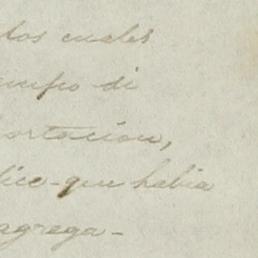 dos cuales
empo di
portacion,
dice-que habia
agrega-